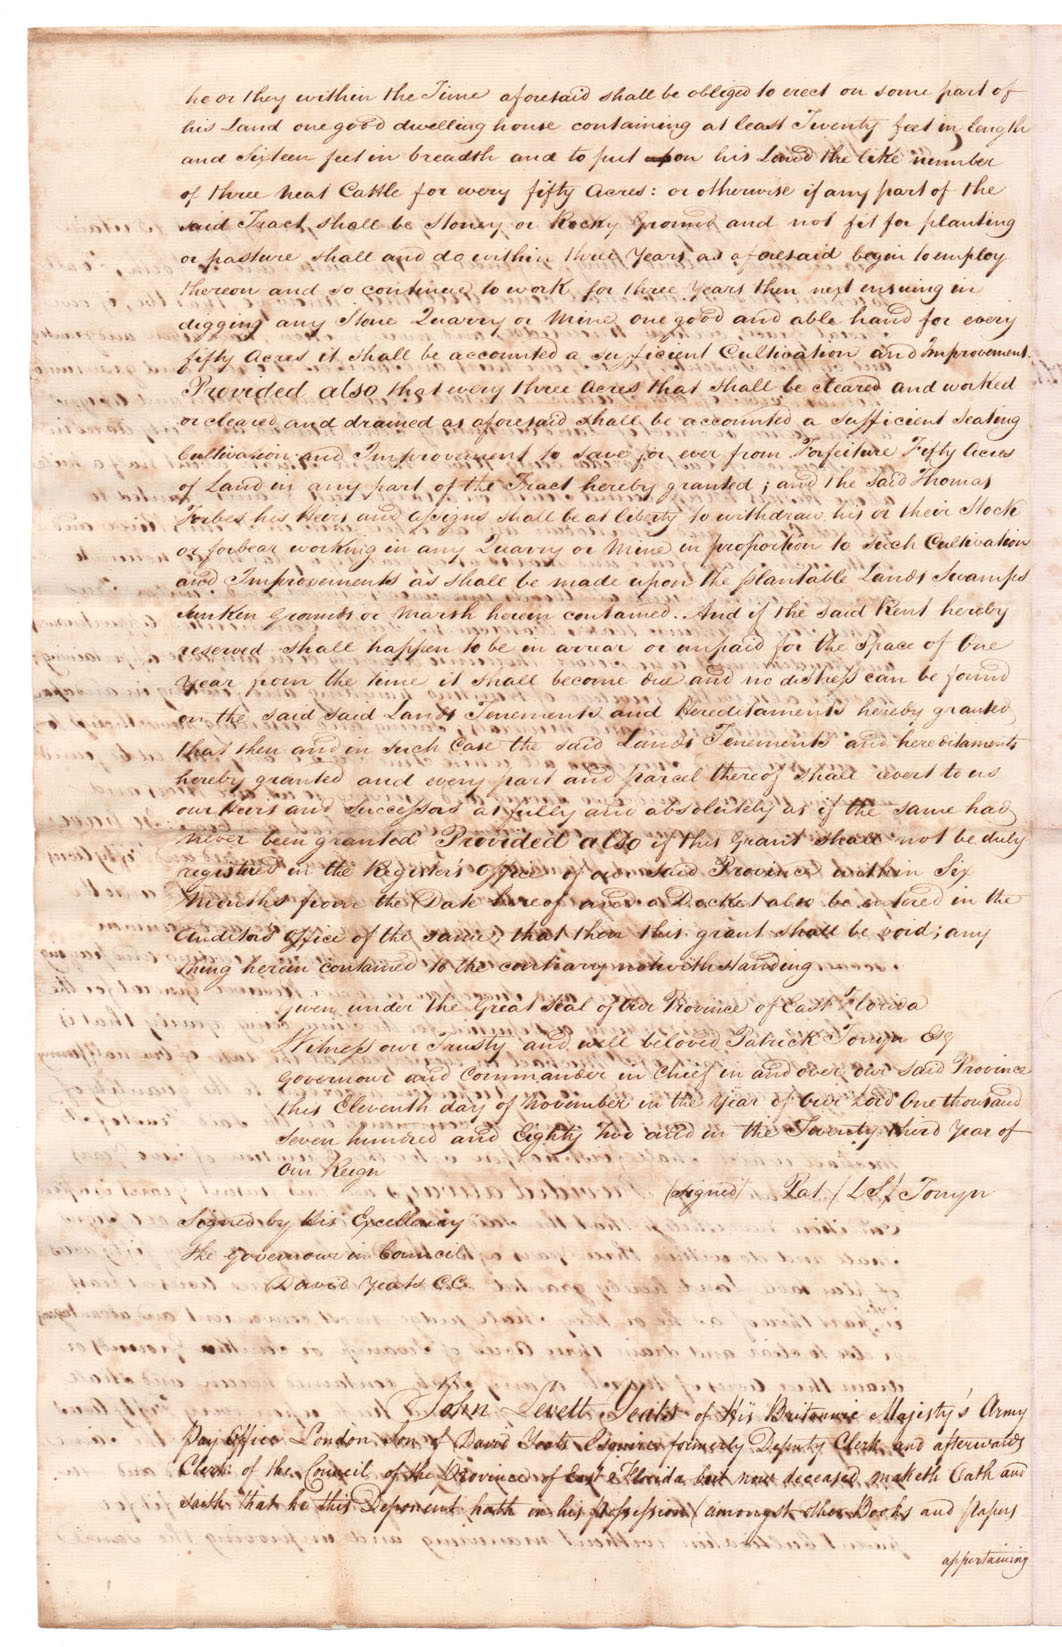 he or they within the Time aforesaid shall be obliged to erect on some part of
his Land one good dwelling house containing at least Twenty feet in length
and Sixteen feet in breadth and to put on his Land the like number
of three neat Cattle for every fifty Acres: or otherwise if any part of the
said Tract shall be Stoney or Rocky Ground and not fit for planting
or pasture shall and do within three Years as aforesaid begin to employ
thereon and so continue to work for three Years then next ensuing in
digging any Stone Quarry or Mine one good and able hand for every
fifty Acres it shall be accounted a sufficient Cultivation and Improvement.
Provided also that every three Acres that shall be cleared and worked
or cleared and drained as aforesaid shall be accounted a sufficient Seating
Cultivation and Improvement to save for ever from Forfeiture Fifty Acres
of Land in any part of the Tract hereby granted; and the said Thomas
Forbes his Heirs and Assigns shall be at liberty to withdraw his or their Stock
or forbear working in any Quarry or Mine in proportion to such Cultivation
and Improvements as shall be made upon the plantable Lands Swamps
sunken Grounds or Marsh herein contained. And if the said Rent hereby
reserved shall happen to be in arrear or unpaid for the space of One
Year from the time it shall become due and no distress can be found
on the said said Lands Tenements and Hereditaments hereby granted
that then and in such Case the said Lands Tenements and hereditaments
hereby granted and every part and parcel thereof shall revert to us
our Heirs and Successors as fully and absolutely as if the same had
never been granted Provided also if this Grant shall not be duly
registred in the Registers Office of our said Province within Six
Months from the Date hereof and a Docket also be entered in the
Auditors Office of the same; that then this grant shall be void; any
thing herein contained to the contrary notwithstanding
Given under the Great Seal of Our Province of East Florida
Witness our Trusty and well beloved Patrick Tonyn Esq
Governour and Commander in Chief in and over our said Province
this Eleventh day of November in the Year of Our Lord One thousand
Seven hundred and Eighty Two and in the Twenty third Year of
Our Reign
(signed) Pat. (LS) Tonyn
Signed by His Excellency
The Governour in Council
David Yeats C.C.
John Levett Yeats of His Britannic Majesty's Army
Pay Office London Son of David Yeats Esquire formerly Deputy Clerk and afterwards
Clerk of the Council of the Province of East Florida but now deceased maketh Oath and
saith that he this Deponent hath in his possession (amongst other Books and papers
appertaining